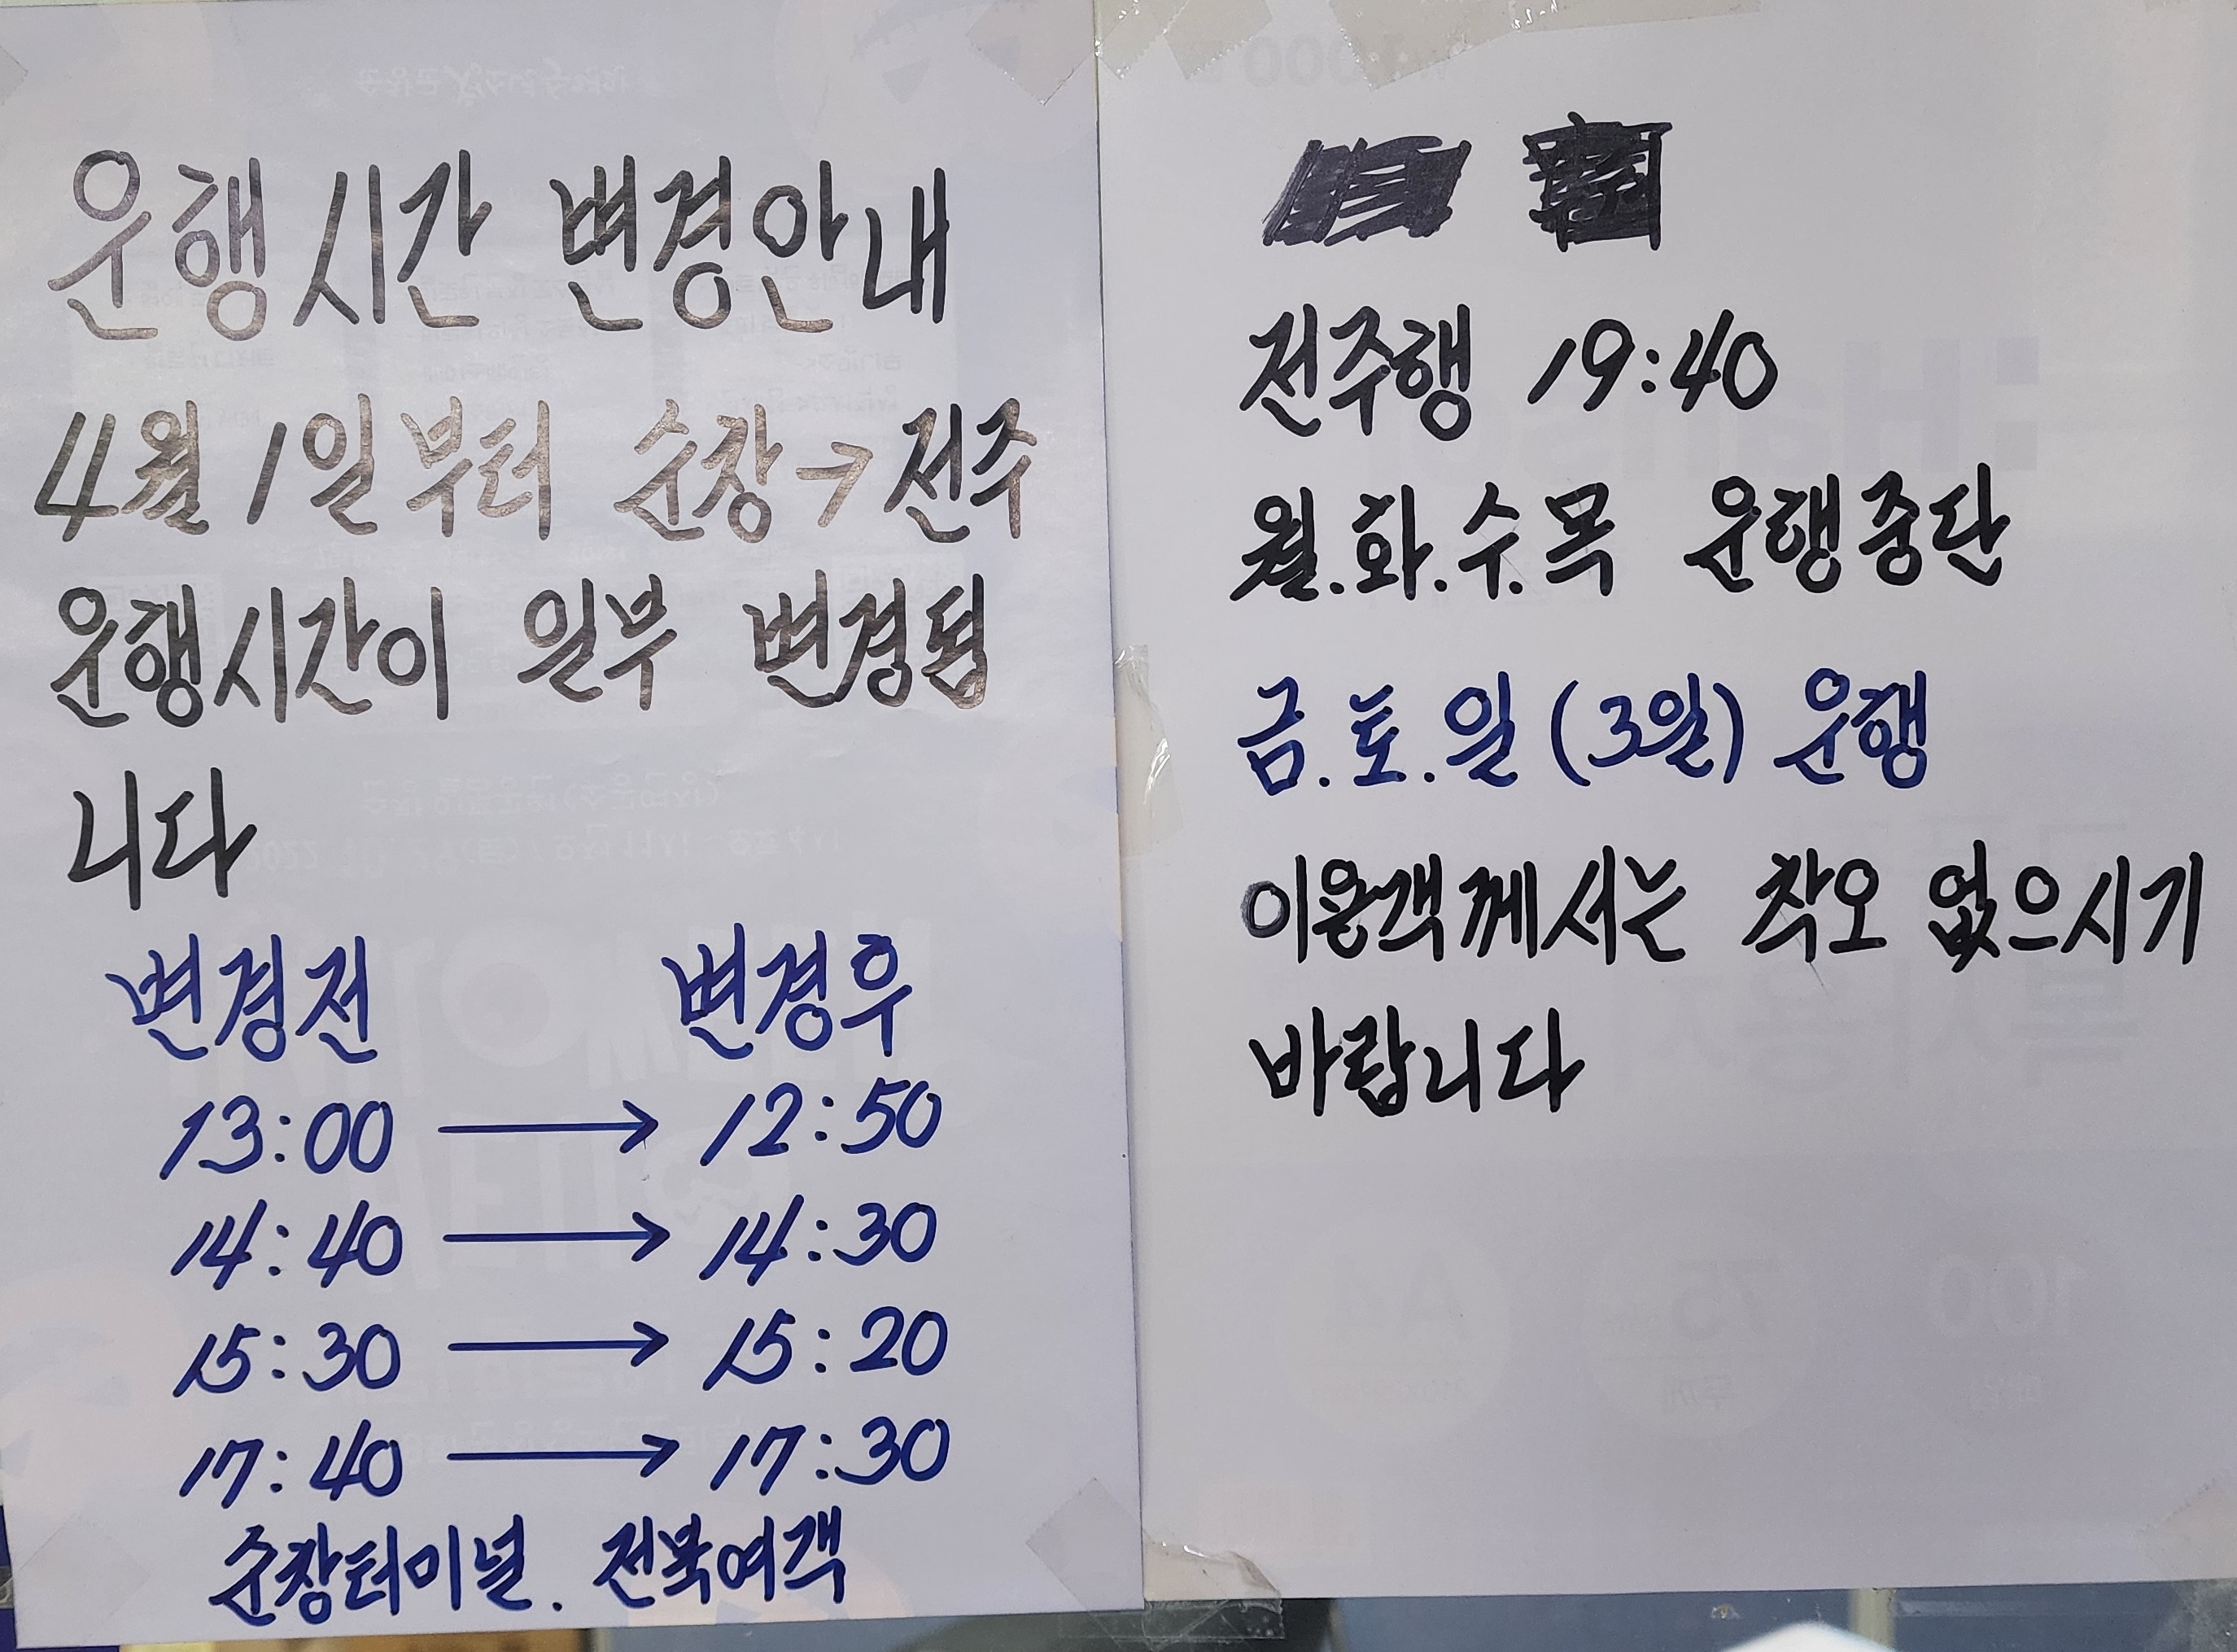 운행시간 변경안내
4월 1일부터 순창→전주
운행시간이 일부 변경됩
니다
변경전 변경후
13:00 → 12:50
14:40 → 14:30
15:30 → 15:20
17:40 → 17:30
순창터미널. 전북여객
전주행 19:40
월.화.수.목 운행중단
금.토.일(3일) 운행
이용객께서는 착오 없으시기
바랍니다